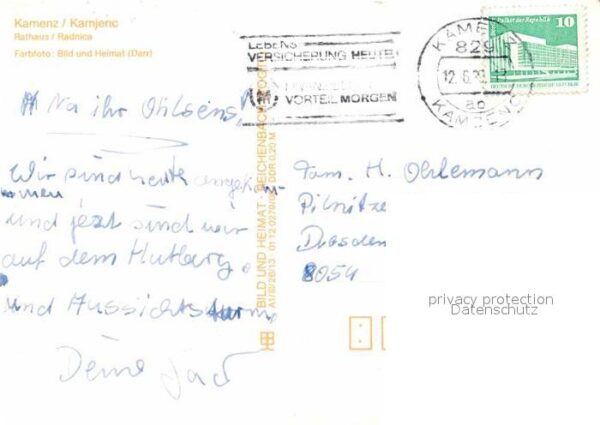 Kamenz / Kamjenc
Rathaus / Radnica
Farbfoto: Bild und Heimat (Darr)
LEBENS
VERSICHERUNG HEUTE
FINANZIELLER
VORTEIL MORGEN
KAMENZ
829
12.6.
ao
KAMJENC
Palast der Republik
10
Na ihr Ohlsens,
Wir sind heute angekom
men
und jezt sind wir
auf dem Hutberg.
und Aussichtsturm
Deine
BILD UND HEIMAT · REICHENBACH (VOGTL)
A1/B/26/13 01 12 0279/0 DDR 0,20 M
Fam. H. Oehlemann
Pilnitze
Dresden
8054
privacy protection
Datenschutz